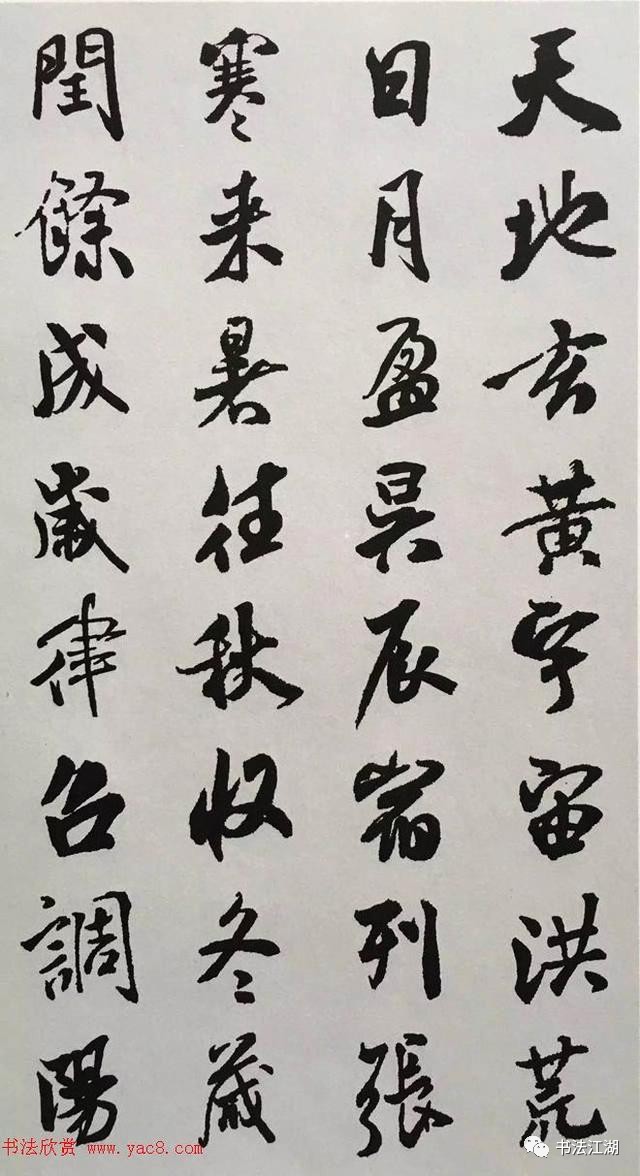 天地玄黃宇宙洪荒
日月盈昃辰宿列張
寒来暑往秋收冬藏
閏餘成歲律召調陽
书法欣赏 www.yac8.com
书法江湖